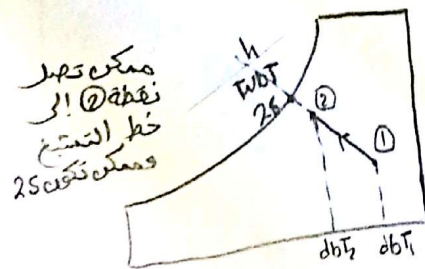 ممكن تصل
نقطة ② إلى
خط التشبع
وممكن تكون 2S
h
TwbT
2S
②
①
dbT₂
dbT₁